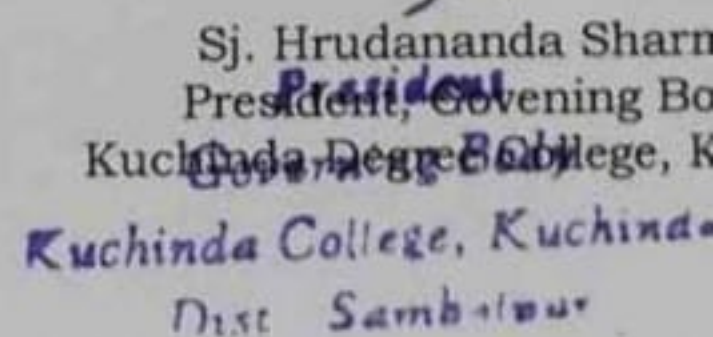 Sj. Hrudananda Sharm
President, Govening Bo
President
Kuchinda Degree College, K
Governing Body
Kuchinda College, Kuchinda
Dist Sambalpur